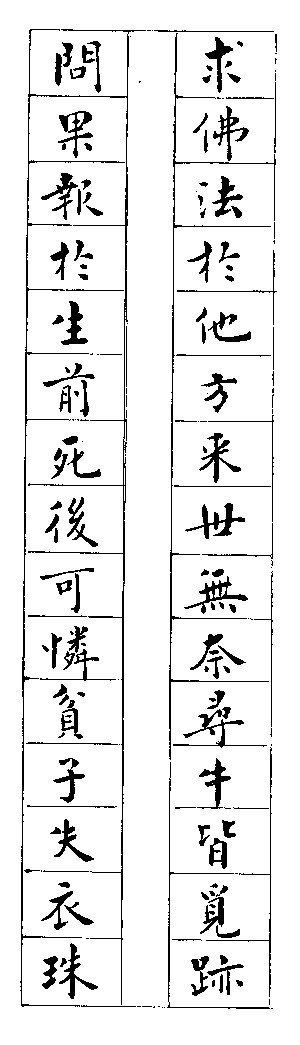 求佛法於他方来世無奈尋牛皆覓跡
問果報於生前死後可憐貧子失衣珠